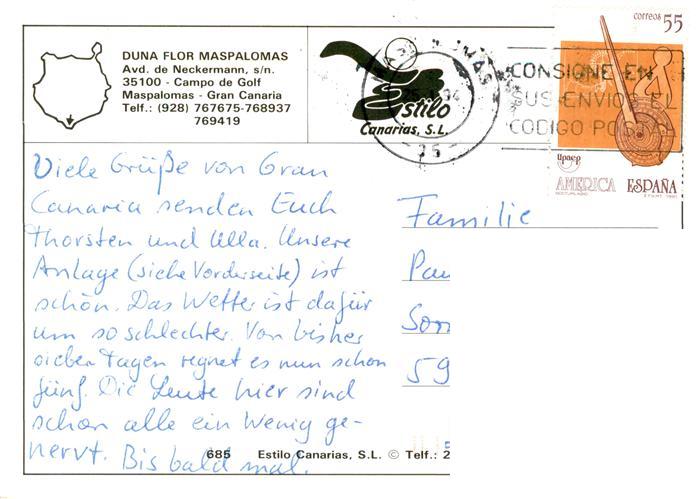 DUNA FLOR MASPALOMAS
Avd. de Neckermann, s/n.
35100 - Campo de Golf
Maspalomas - Gran Canaria
Telf.: (928) 767675-768937
769419
Estilo
Canarias, S.L.
CONSIGNE EN
SUS ENVIOS EL
CODIGO POSTAL
- 25 -
correos 55
Upaep
AMERICA ESPAÑA
Viele Grüße von Gran
Canaria senden Euch
Thorsten und Ulla. Unsere
Anlage (siehe Vorderseite) ist
schön. Das Wetter ist dafür
um so schlechter. Von bisher
sieben Tagen regnet es nun schon
fünf. Die Leute hier sind
schon alle ein wenig ge-
nervt. Bis bald mal.
Familie
Pau
Son
59
685 Estilo Canarias, S.L. © Telf.: 2